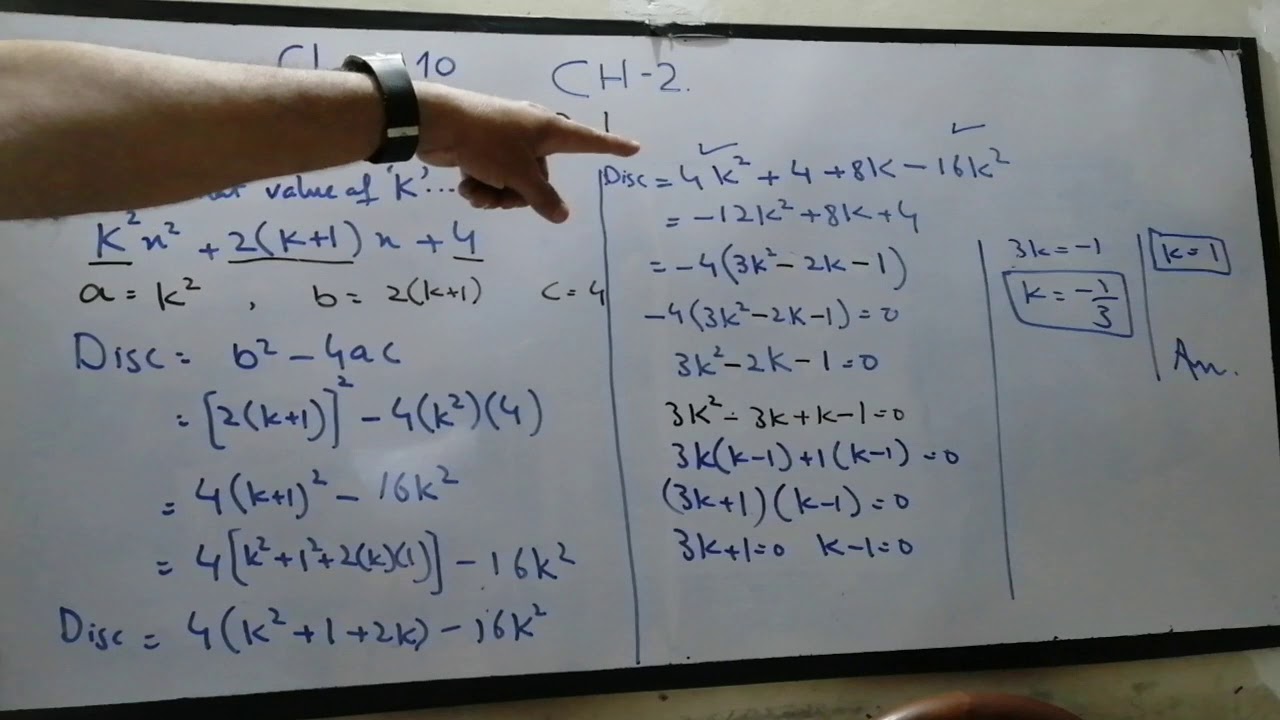 10
CH-2.
1
value of 'K'...
K²x² + 2(k+1)x + 4
a = k² , b = 2(k+1) c = 4
Disc = b² - 4ac
= [2(k+1)]² - 4(k²)(4)
= 4(k+1)² - 16k²
= 4[k²+1²+2(k)(1)] - 16k²
Disc = 4(k²+1+2k) - 16k²
Disc = 4k² + 4 + 8k - 16k²
= -12k² + 8k + 4
= -4(3k² - 2k - 1)
-4(3k² - 2k - 1) = 0
3k² - 2k - 1 = 0
3k² - 3k + k - 1 = 0
3k(k-1) + 1(k-1) = 0
(3k+1)(k-1) = 0
3k+1=0 k-1=0
3k = -1
k = -1/3
k = 1
An.